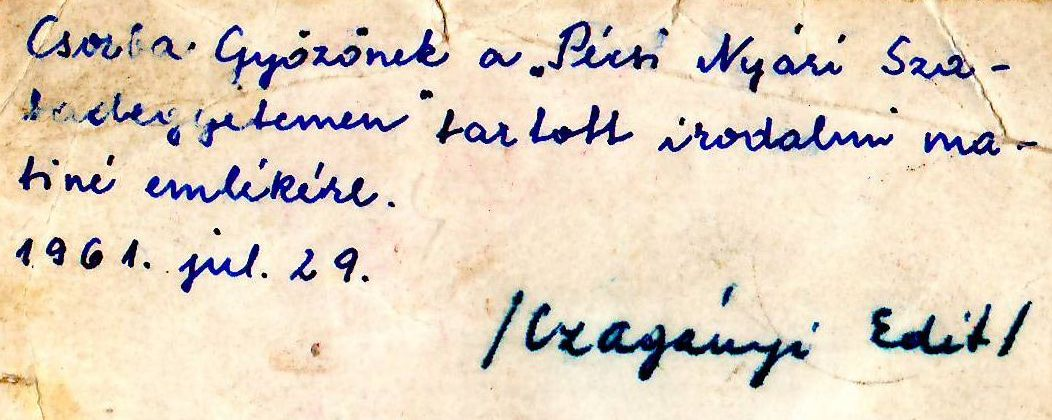 Csorba Győzőnek a „Pécsi Nyári Sza-
badegyetemen" tartott irodalmi ma-
tiné emlékére.
1961. jul. 29.
/Czagányi Edit/